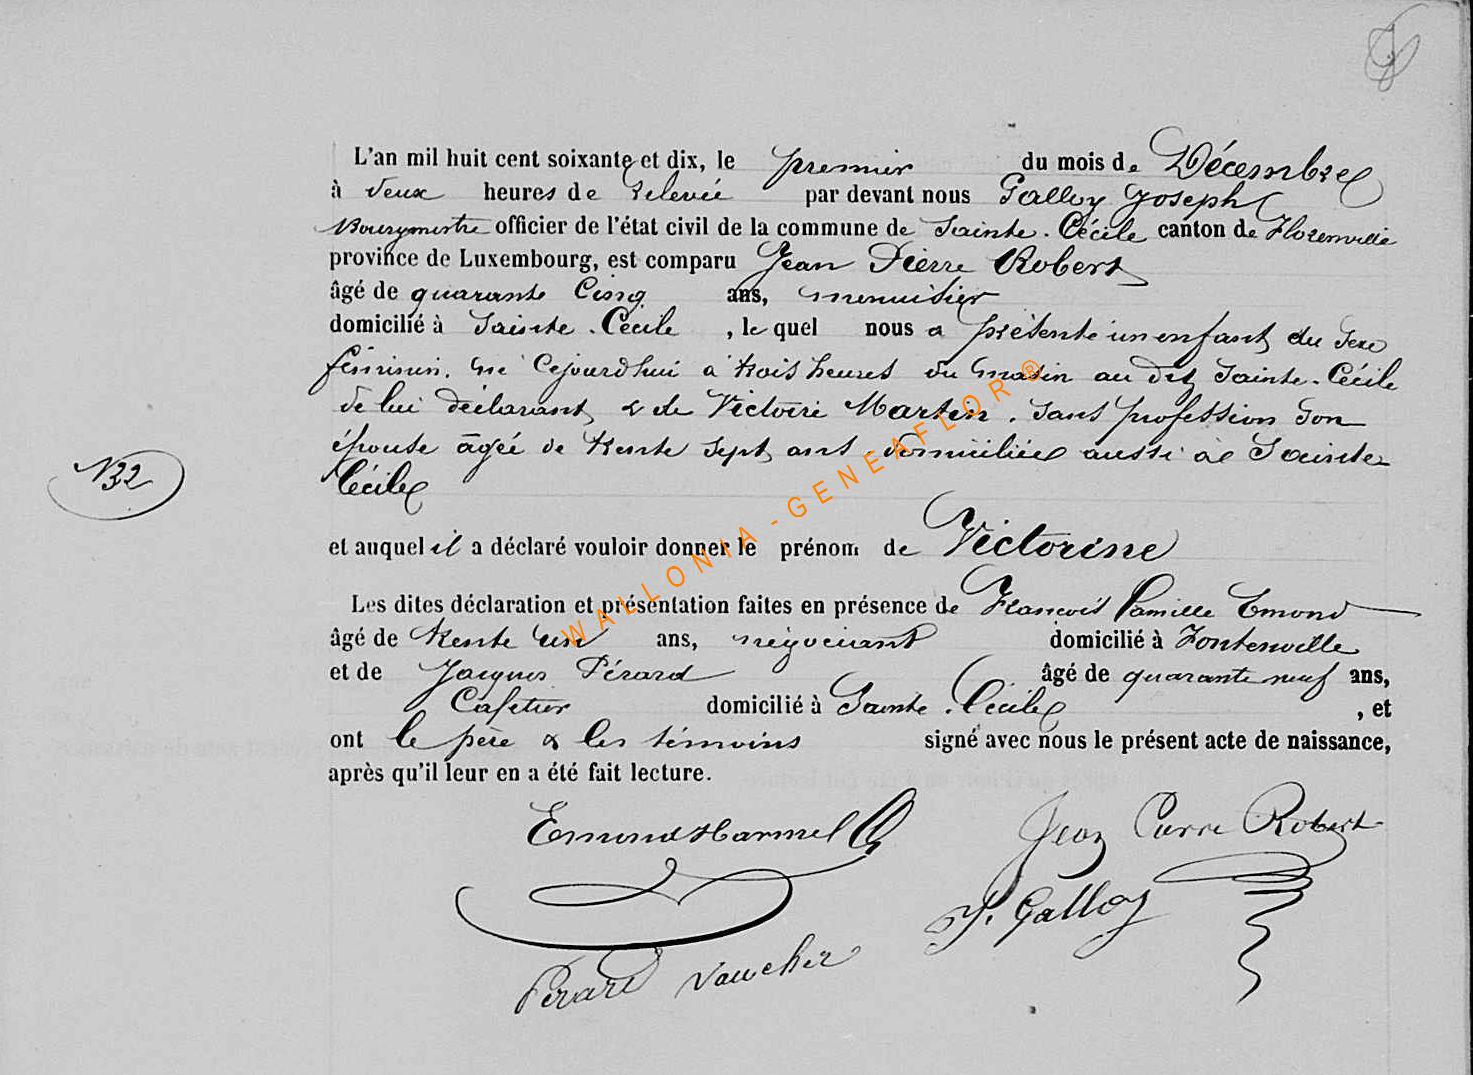 L'an mil huit cent soixante et dix, le premier du mois de Décembre
à deux heures de relevée par devant nous Galloy Joseph
Bourgmestre officier de l'état civil de la commune de Sainte-Cécile canton de Florenville
province de Luxembourg, est comparu Jean Pierre Robert
âgé de quarante Cinq ans, menuisier
domicilié à Sainte-Cécile, le quel nous a présenté un enfant du sexe
féminin, né cejourd'hui à trois heures du matin au dit Sainte-Cécile
de lui déclarant & de Victoire Martin, sans profession son
épouse âgée de trente sept ans, domiciliée aussi à Sainte
N32
Cécile
et auquel il a déclaré vouloir donner le prénom de Victorine
Les dites déclaration et présentation faites en présence de François Camille Emond
âgé de trente un ans, négociant domicilié à Fontenoille
et de Jacques Pérard âgé de quarante neuf ans,
Cafetier domicilié à Sainte-Cécile, et
ont le père & les témoins signé avec nous le présent acte de naissance,
après qu'il leur en a été fait lecture.
Emond Harmel
Jean Pierre Robert
J. Galloy
Pérard Vaucher
WALLONIA-GENEAFLOR®